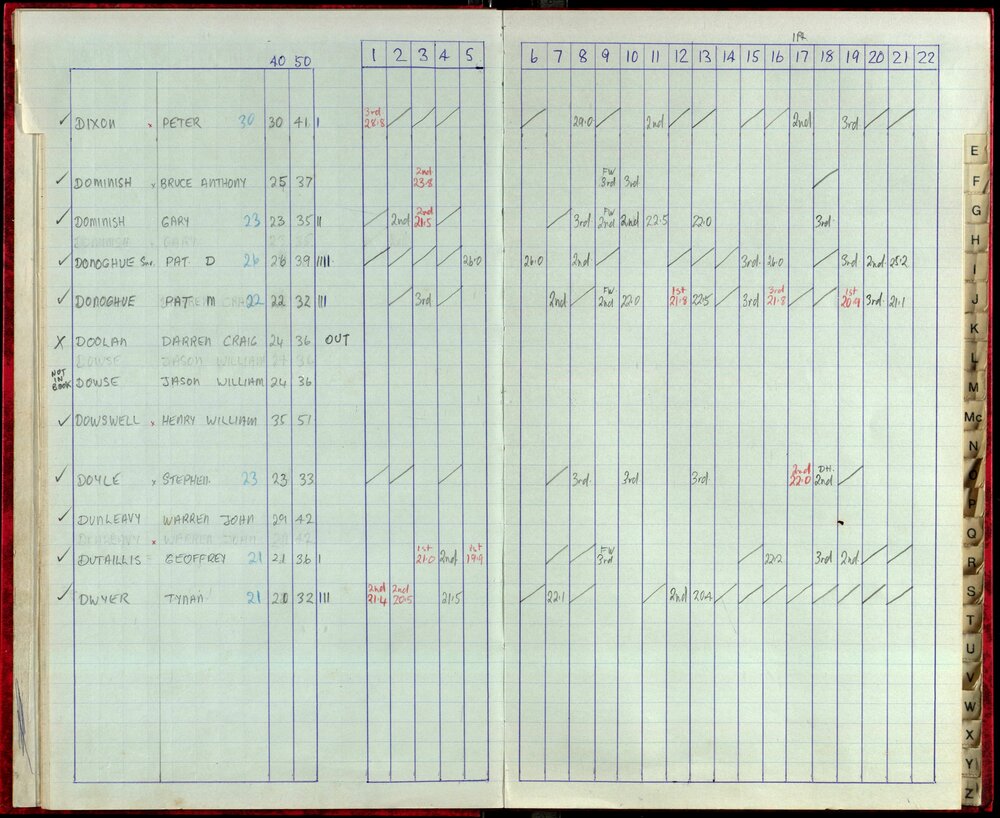 1Pt
40 50 1 2 3 4 5 6 7 8 9 10 11 12 13 14 15 16 17 18 19 20 21 22
✓ DIXON x PETER 30 30 41 I 3rd 28.8 / / / / 29.0 / 2nd / / / / / 2nd / 3rd / /
✓ DOMINISH x BRUCE ANTHONY 25 37 2nd 23.8 FW 3rd 3rd /
✓ DOMINISH GARY 23 23 35 II / 2nd 2nd 21.5 / / 3rd FW 2nd 2nd 22.5 22.0 3rd
DOMINISH GARY 23 35
✓ DONOGHUE Snr. PAT D 26 26 39 IIII / / / / 26.0 26.0 / 2nd / / / / 3rd 26.0 / 3rd 2nd 25.2
✓ DONOGHUE PAT M 22 22 32 III / 3rd / 2nd / FW 2nd 22.0 / 1st 21.8 22.5 / 3rd 3rd 21.8 / / 1st 20.9 3rd 21.1
X DOOLAN DARREN CRAIG 24 36 OUT
DOWSE JASON WILLIAM 36
NOT IN BOOK DOWSE JASON WILLIAM 24 36
✓ DOWSWELL x HENRY WILLIAM 35 51
✓ DOYLE x STEPHEN 23 23 33 / / / / 3rd 3rd 3rd 2nd 22.0 DH. 2nd /
✓ DUNLEAVY WARREN JOHN 29 42
DUNLEAVY x WARREN JOHN 42
✓ DUTAILLIS GEOFFREY 21 21 36 I 1st 21.0 2nd 1st 19.9 / / FW 3rd / 22.2 / 3rd 2nd / /
✓ DWYER TYNAN 21 21 32 III 2nd 21.4 2nd 20.5 21.5 / 22.1 / / 2nd 20.4 / / / / / / / /
E
F
G
H
I
J
K
L
M
Mc
N
O
P
Q
R
S
T
U
V
W
X
Y
Z